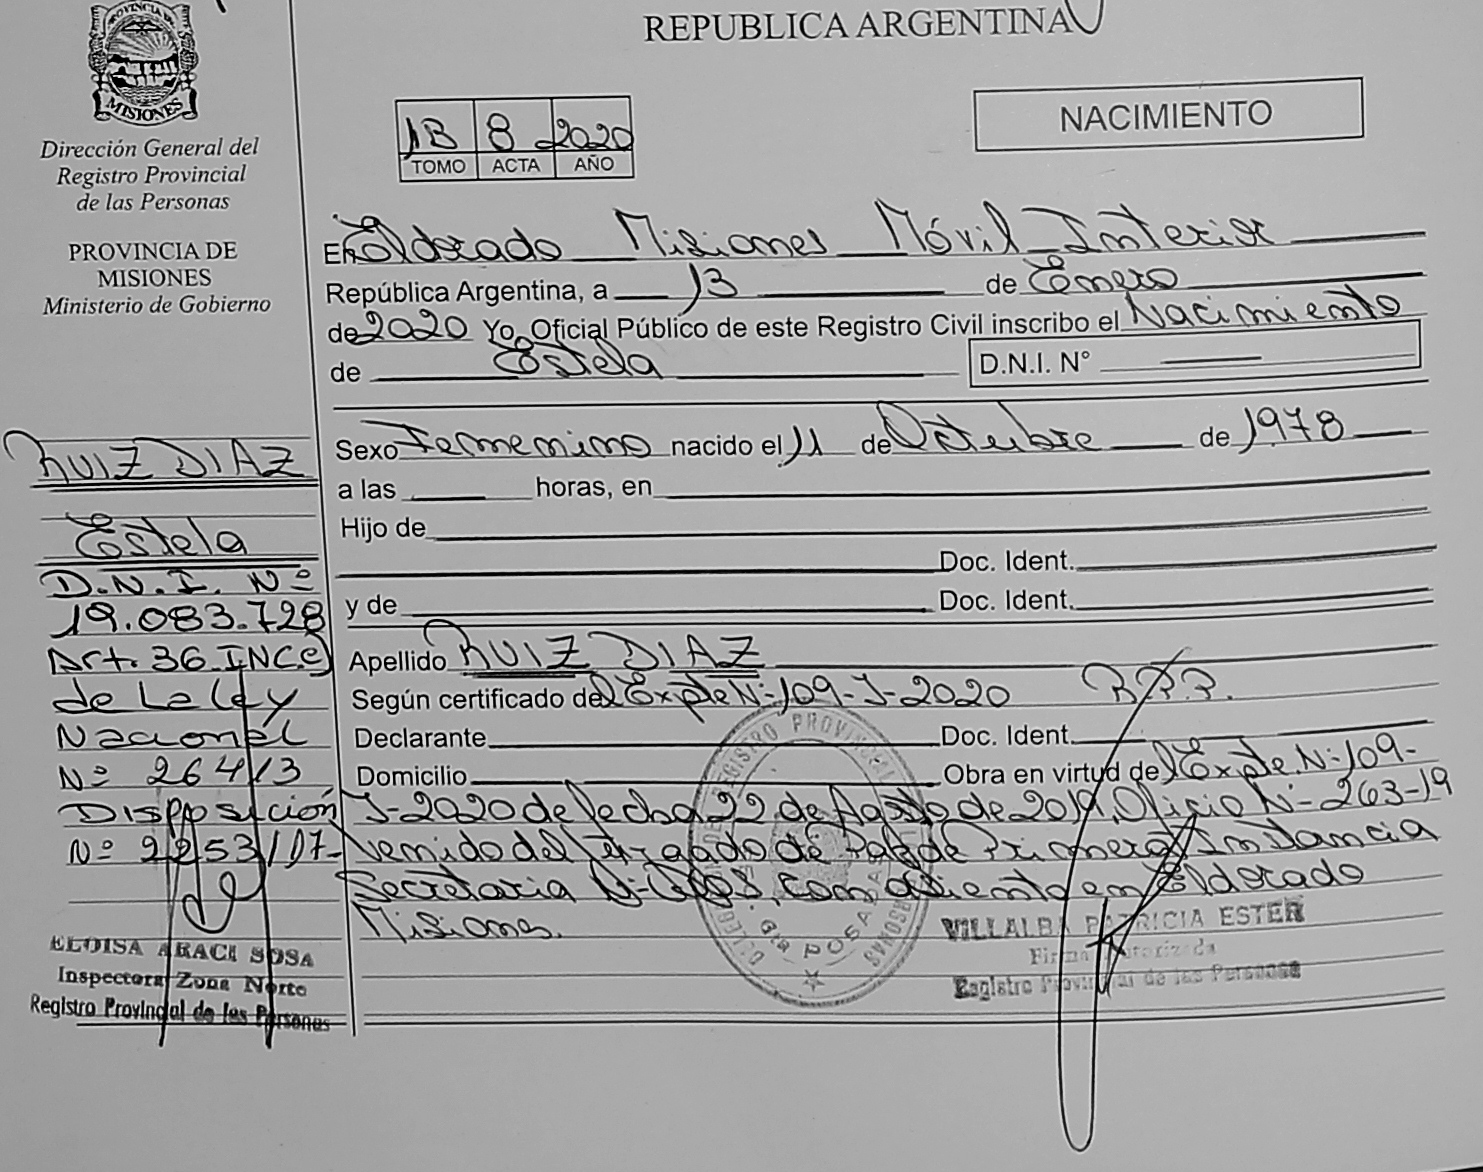 REPUBLICA ARGENTINA
MISIONES
Dirección General del
Registro Provincial
de las Personas
PROVINCIA DE
MISIONES
Ministerio de Gobierno
1B 8 2020
TOMO ACTA AÑO
NACIMIENTO
En Eldorado Misiones Móvil Interior
República Argentina, a 13 de Enero
de 2020 Yo, Oficial Público de este Registro Civil inscribo el Nacimiento
de Estela D.N.I. N°
Sexo Femenino nacido el 11 de Octubre de 1978
a las horas, en
Hijo de
Doc. Ident.
y de Doc. Ident.
Apellido RUIZ DIAZ
Según certificado del Expte N:109-J-2020 R.P.P.
Declarante Doc. Ident.
Domicilio Obra en virtud del Expte. N:109-
J-2020 de fecha 22 de Agosto de 2019, Oficio N:-263-19
venido del Juzgado de Paz de Primera Instancia
Secretaria con asiento en Eldorado
Misiones.
RUIZ DIAZ
Estela
D.N.I. Nº
19.083.728
Art. 36 INC.c)
de La Ley
Nacional
Nº 26413
Disposición
Nº 2253/17-
ELOISA ARACI SOSA
Inspectora Zona Norte
Registro Provincial de las Personas
VILLALBA PATRICIA ESTER
Firma Autorizada
Registro Provincial de las Personas
REGISTRO PROVINCIAL
POSADAS